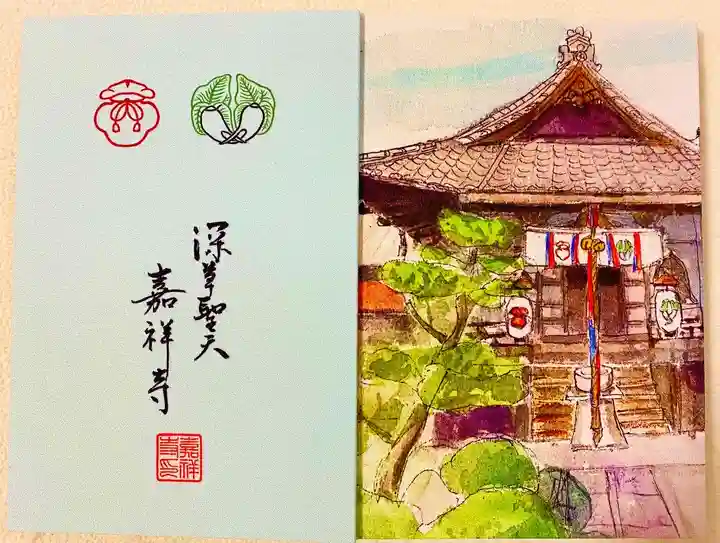 深草聖天
嘉祥寺
嘉祥
寺印